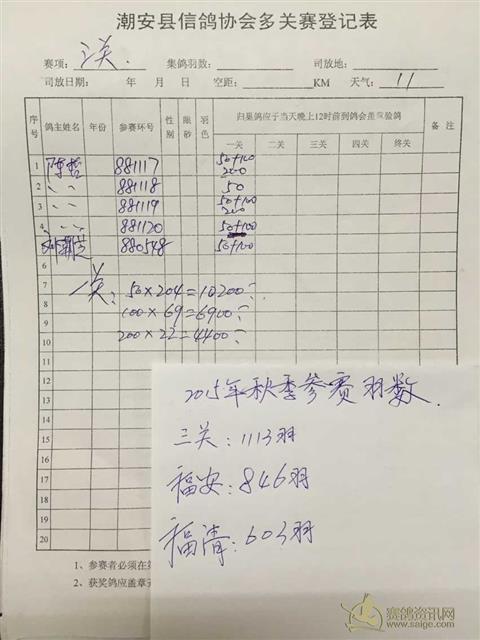 潮安县信鸽协会多关赛登记表
赛项： 三关. 集鸽羽数： 司放地：
司放日期： 年 月 日 空距： KM 天气： 11
序号 鸽主姓名 年份 参赛环号 性别 眼砂 羽色 归巢鸽应于当天晚上12时前到鸽会 验鸽 备注
一关 二关 三关 四关 终关
1 陈哲 881117 50+100 200
2 〃 881118 50
3 〃 881119 50+100 200
4 〃 881120 50+100
5 880548 50+100
6
7 一关: 50×204=10200
8 100×69=6900
9 200×22=4400
10
11
12
13
14
15
16
17
18
19
20
2015年秋季参赛羽数.
三关: 1113羽
福安: 846羽
福清: 603羽
1、参赛者必须在
2、获奖鸽应盖章
赛鸽资讯网
www.saige.com